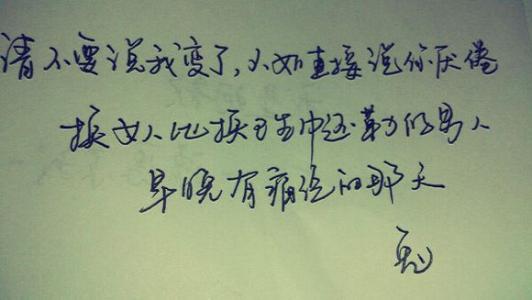 请不要说我变了,不如直接说你厌倦
换女人比换卫生巾还勤的男人
早晚有病危的那天